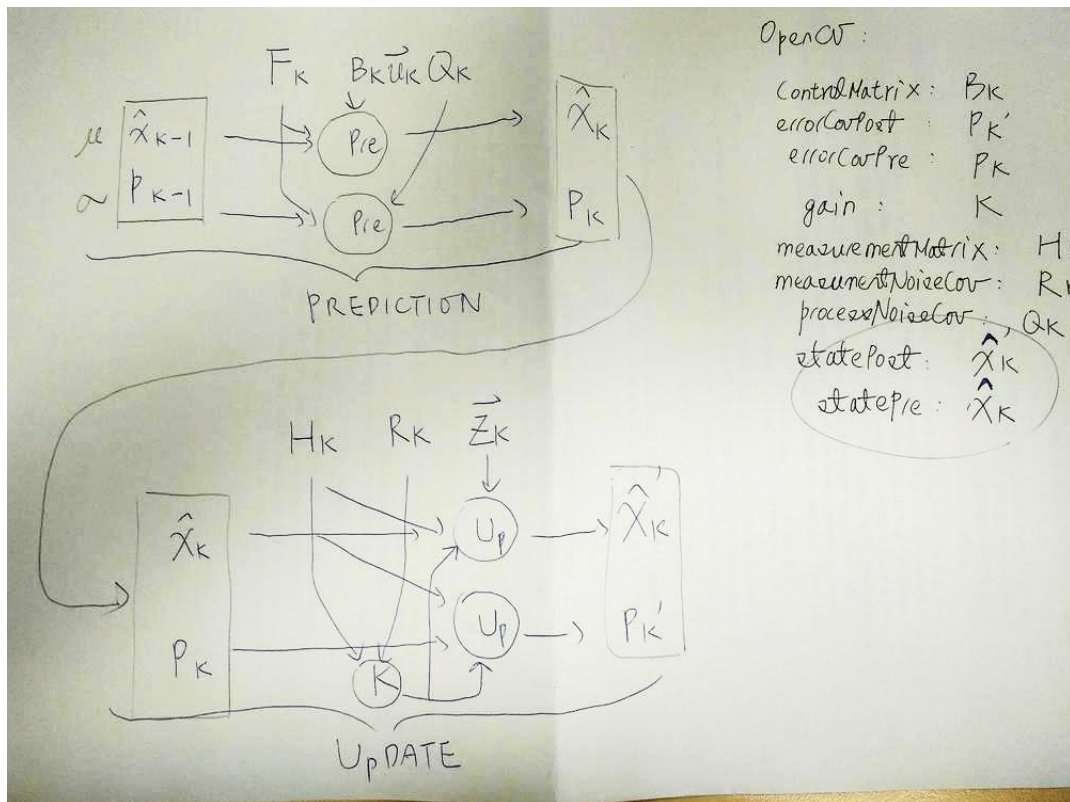 F_K B_K u⃗_K Q_K
μ x̂_K-1 Pre x̂_K
σ P_K-1 Pre P_K
PREDICTION
H_K R_K z⃗_K
x̂_K Up x̂_K'
P_K Up P_K'
K
UpDATE
OpenCV:
ControlMatrix: B_K
errorCovPost: P_K'
errorCovPre: P_K
gain: K
measurementMatrix: H
measumentNoiseCov: R_K
processNoiseCov: Q_K
statePost: x̂_K'
statePre: x̂_K